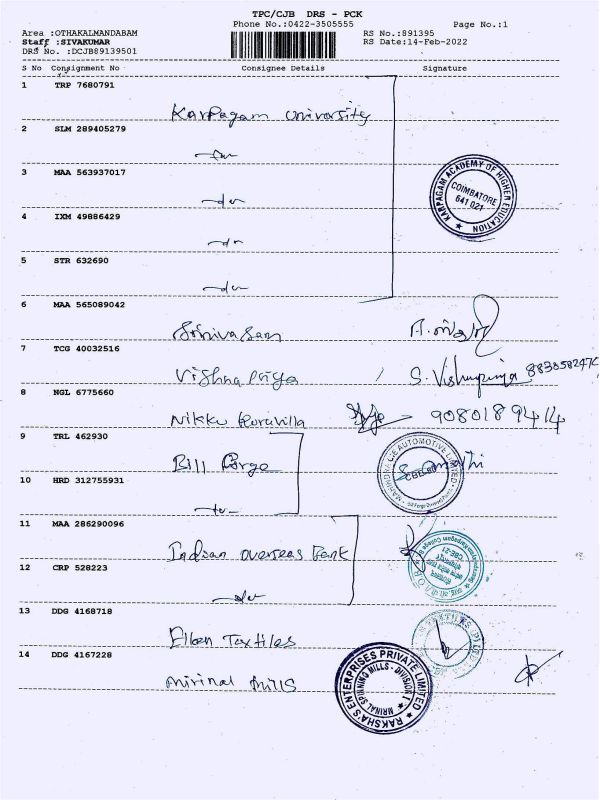 TPC/CJB DRS - PCK
Phone No.:0422-3505555 Page No.:1
Area :OTHAKALMANDABAM RS No.:891395
Staff :SIVAKUMAR RS Date:14-Feb-2022
DRS No. :DCJB89139501
S No Consignment No Consignee Details Signature
1 TRP 7680791
Karpagam University
2 SLM 289405279
3 MAA 563937017
4 IXM 49886429
5 STR 632690
KARPAGAM ACADEMY OF HIGHER EDUCATION
COIMBATORE
641 021
6 MAA 565089042
Srinivasan
7 TCG 40032516
Vishnu Priya S. Vishnupriya
8 NGL 6775660
Nikku Kuruvilla 9080189414
9 TRL 462930
Bill Forge
MAHINDRA CIE AUTOMOTIVE LIMITED
10 HRD 312755931
11 MAA 286290096
Indian Overseas Bank
12 CRP 528223
13 DDG 4168718
Ellen Textiles
14 DDG 4167228
Mirinal Mills
RAKSHA'S ENTERPRISES PRIVATE LIMITED
MRINAL SPINNING MILLS - DIVISION